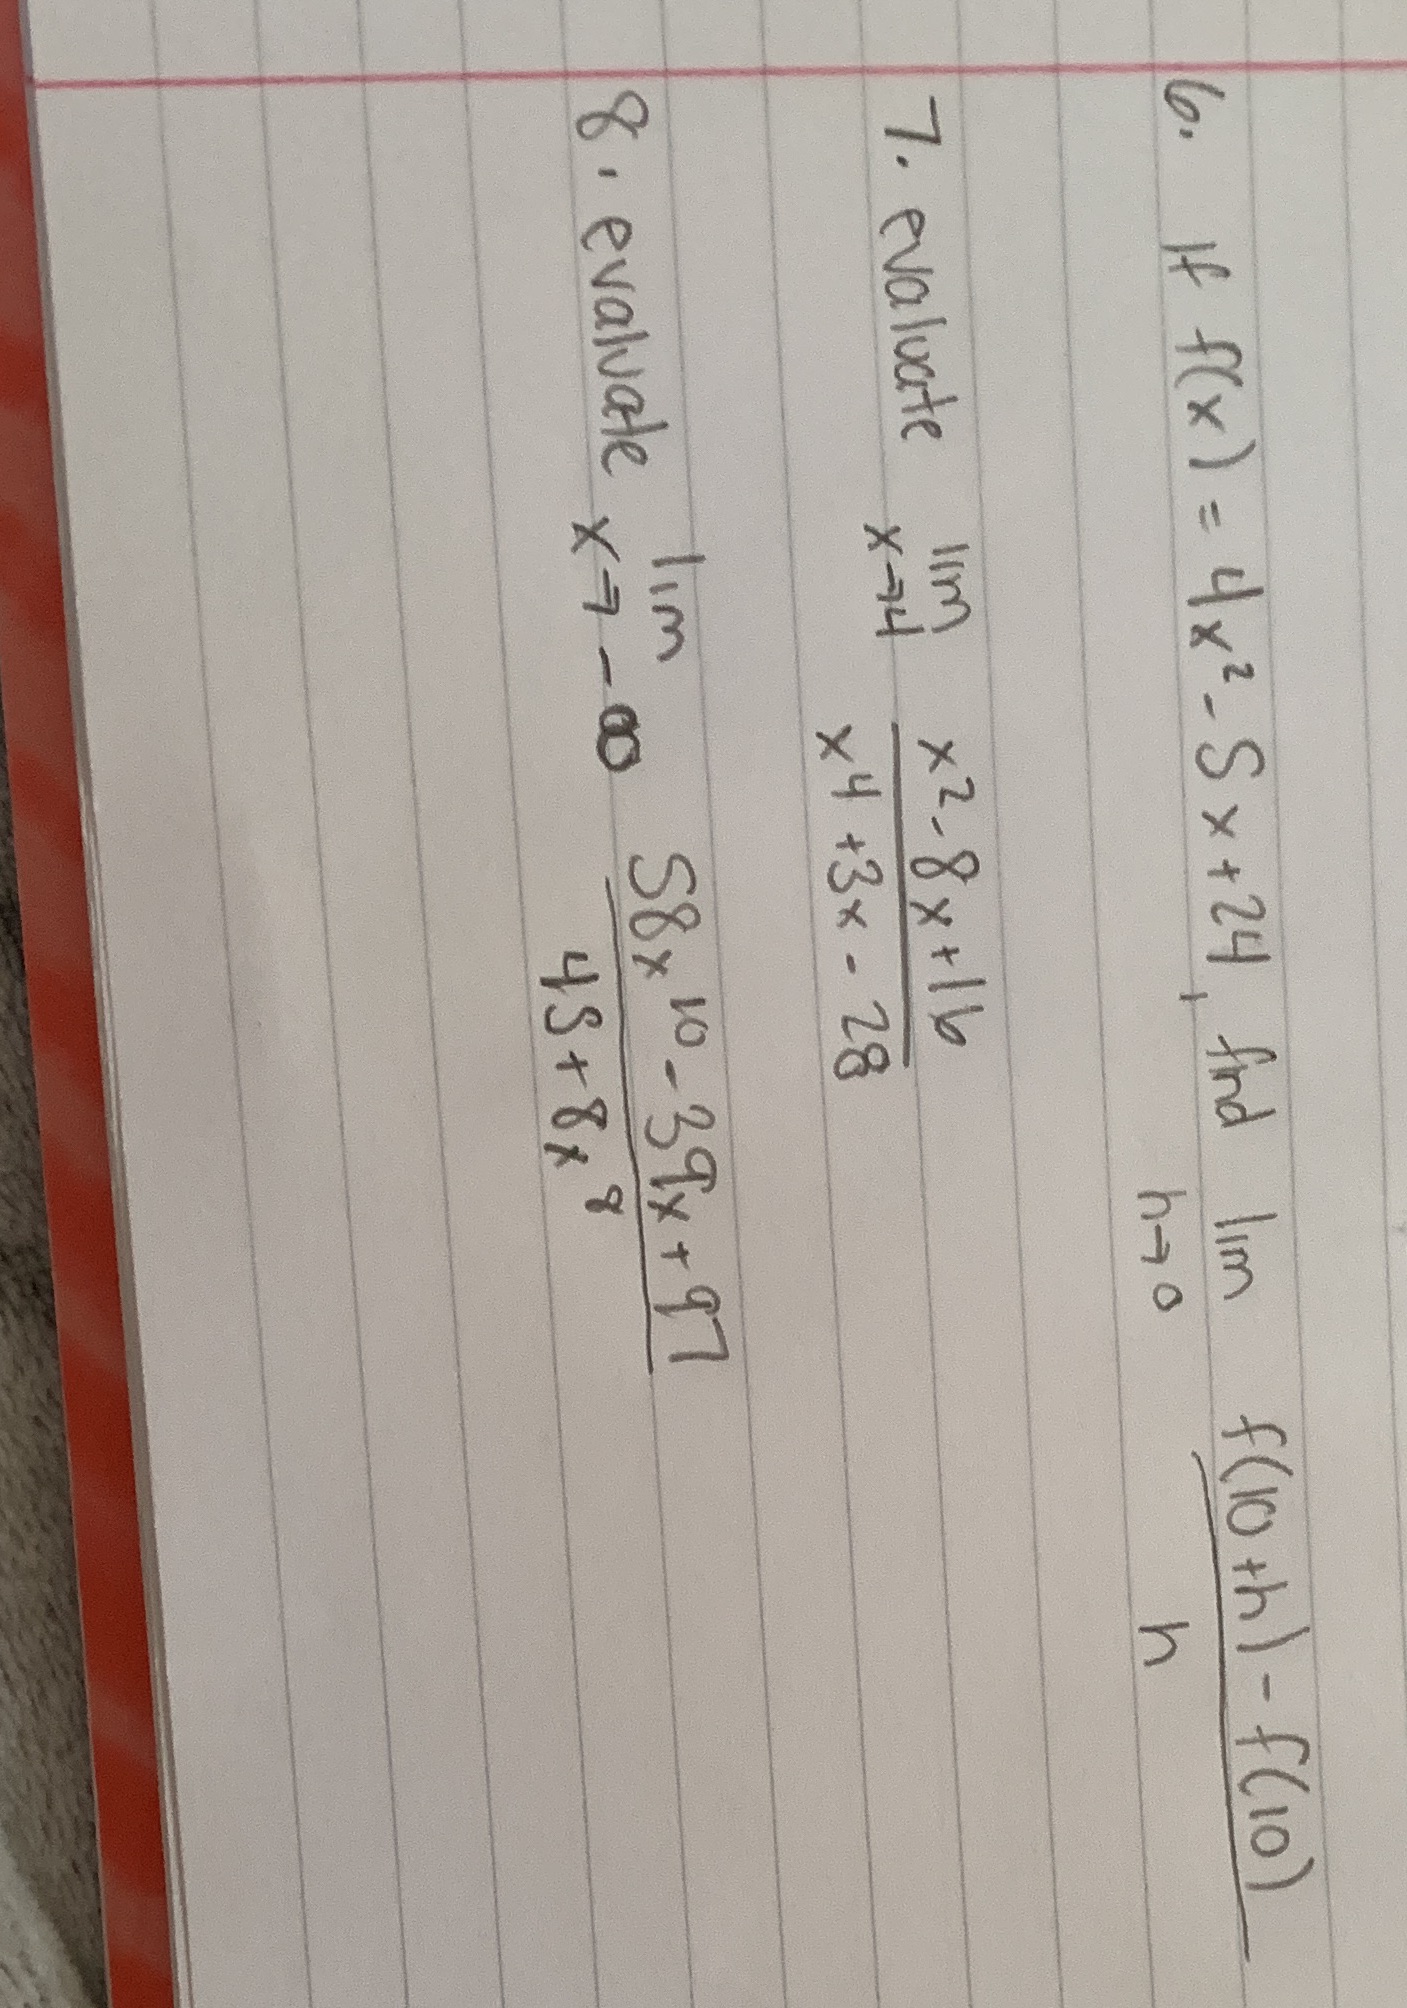 6. If f(x) = 4x² - 5x + 24, find lim f(10+h) - f(10)
h→0 h
7. evaluate lim x² - 8x + 16
x→4 x⁴ + 3x - 28
8. evaluate lim 58x¹⁰ - 39x + 97
x→ -∞ 45 + 8x⁸